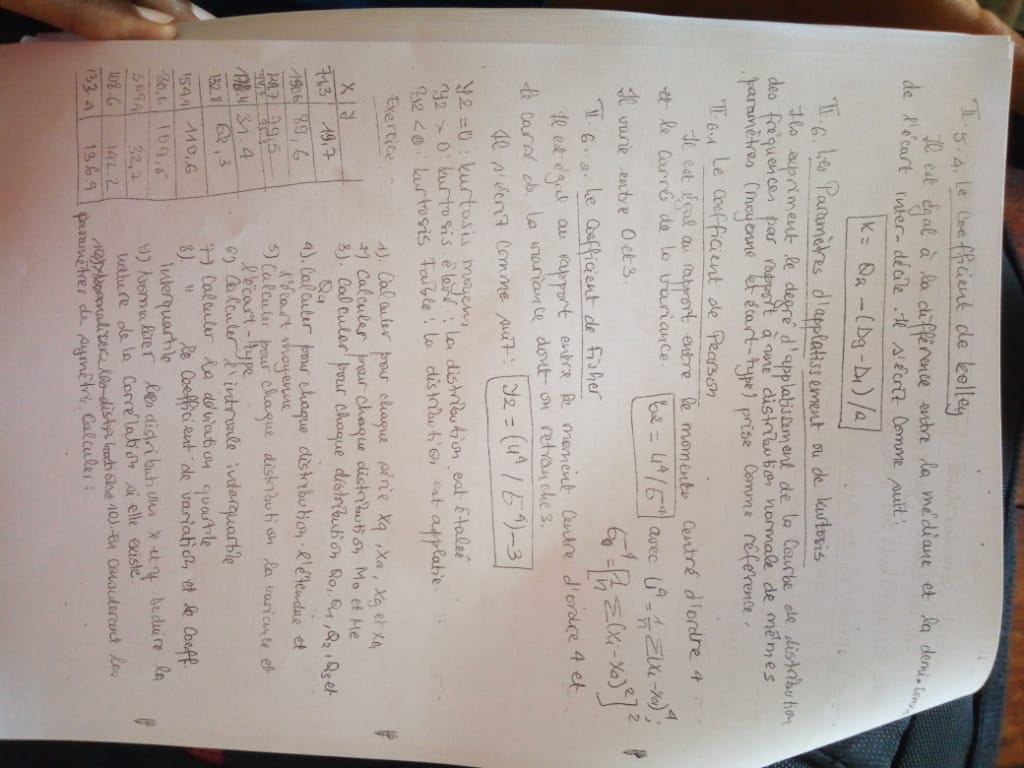 II.5.4. Le coefficient de kelley
Il est égal à la différence entre la médiane et la demi.
de l'écart inter-décile. Il s'écrit comme suit:
K = Q2 - (D9 - D1)/2
II.6. Les Paramètres d'applatissement ou de kurtosis
Ils expriment le degré d'applatissement de la courbe de distribution
des fréquences par rapport à une distribution normale de mêmes
paramètres (moyenne et écart-type) prise comme référence.
II.6.1 Le coefficient de Pearson
Il est égal au rapport entre le momente centré d'ordre 4
et le carré de la variance. = u4/σ4 avec u4 = 1/n Σ(xi-x0)4;
Il varie entre 0 et 3. σ4 = [1/n Σ(xi-x0)2]2
II.6..2. Le coefficient de Fisher
Il est égal au rapport entre le moment centre d'ordre 4 et
le carré de la variance dont on retranche 3.
Il s'écrit comme suit: Y2 = (u4/σ4)-3
Y2 = 0 : kurtosis moyens
Y2 > 0 : kurtosis élévé : la distribution est étaleé
Y2 < 0 : kurtosis Faible : la distribution est applatie.
Exercice
1). Calculer pour chaque série Xq, Xa, Xg et
2) Calculer pour chaque distribution Mo et Me
3). Calculer pour chaque distribution Q0, Q1, Q2, Q3 et
Q4
4). Calculer pour chaque distribution l'étendue et
l'écart moyenne
5) Calculer pour chaque distribution la variance et
l'écart-type
6) Calculer l'intrvale interquartile
7) Calculer la déviation quartile
8). " le coefficient de variation et le coeff.
interquartile
9) Normaliser les distributions x et y. Deduire la
nature de la corrélation si elle existe.
10). En considerant les
paramètres de symétrie. Calculer:
X Y
71,3 19,7
190.6 89,6
79,5
178.4 31.4
132.8 62,3
154.4 110,6
80,6 109,8
309.4 32,7
108.6 142.2
133.4 136.9